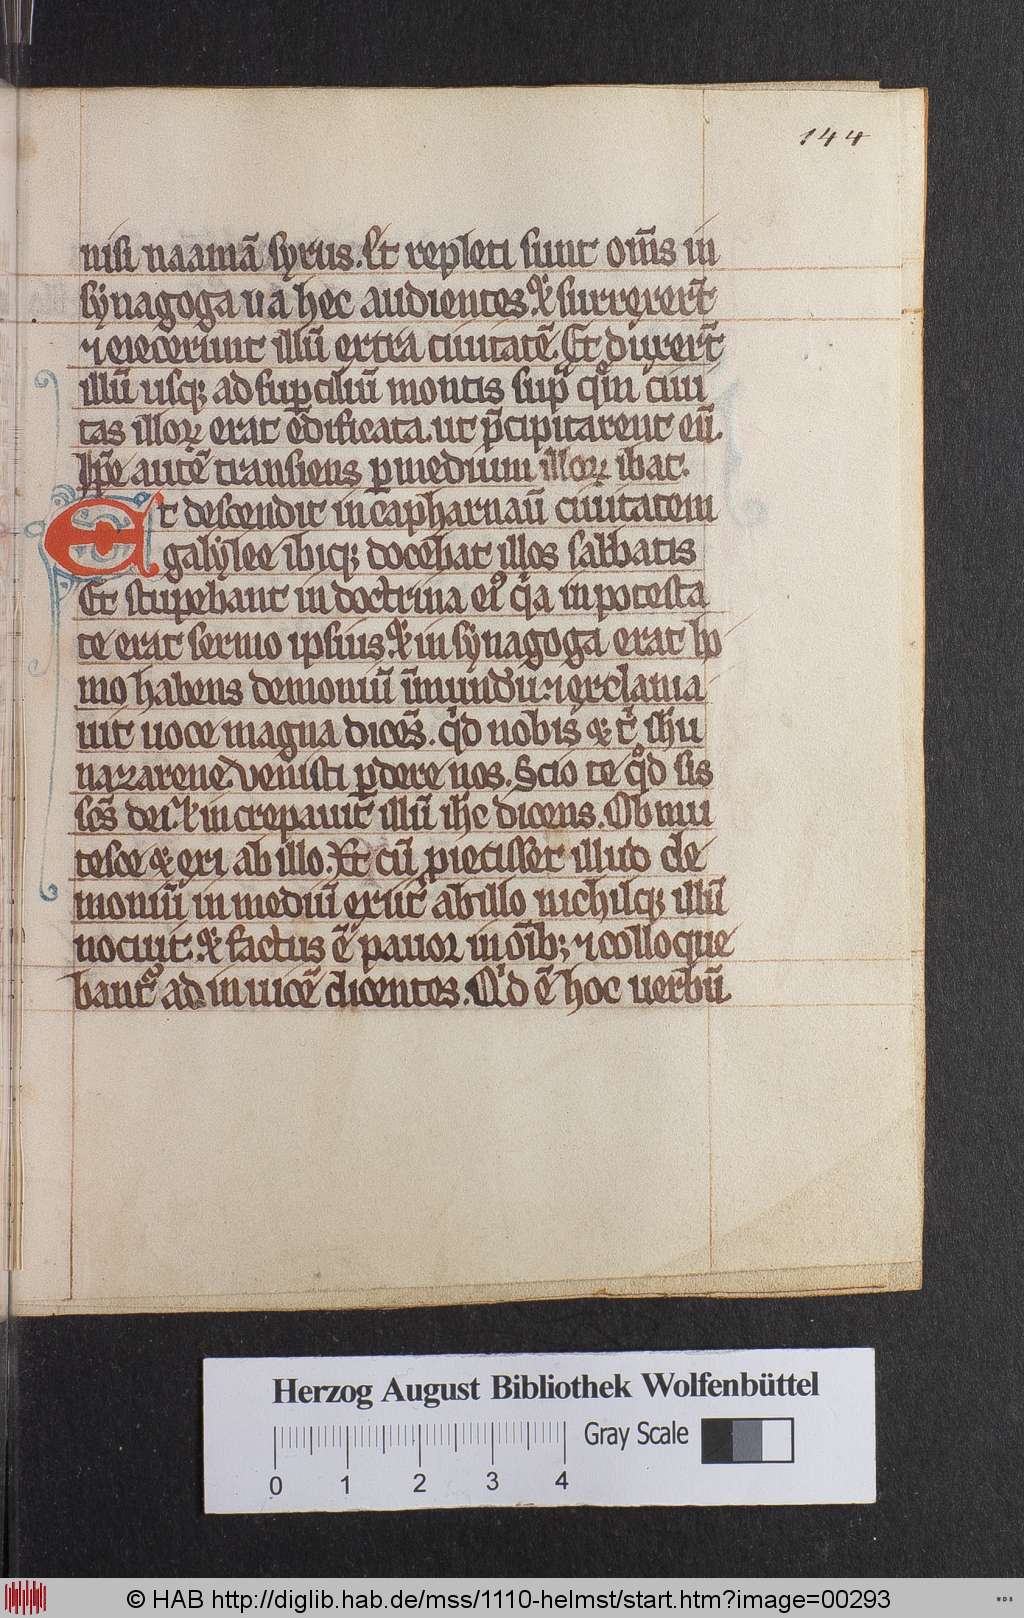 144
nisi naamā syrus. Et repleti sunt om̄s in
synagoga ira hec audientes. ⁊ surrexer̄t
⁊ eiecerunt illū extra ciuitatē. Et duxer̄t
illū usq; ad suꝑciliū montis sup̄ qͦm ciui
tas illoꝝ erat edificata. ut p̄cipitarent eū.
Ip̄e autē transiens ꝑ medium illoꝝ ibat.
Et descendit in capharnaū ciuitatem
galylee ibiq; docebat illos sabbatis
Et stupebant in doctrina eiꝰ qͥa in potesta
te erat sermo ipsius. ⁊ in synagoga erat ho
mo habens demoniū īmundū. ⁊ exclama
uit uoce magna dicēs. qͥd nobis ⁊ tͥ ih̄u
nazarene venisti ꝑdere nos. Scio te qͦd sis
sc̄s dei. ⁊ increpauit illū ih̄c dicens. Obmu
tesce ⁊ exi ab illo. Et cū ꝓiecisset illud de
moniū in mediū exiit ab illo nichilq; illū
nocuit. ⁊ factus ē pauor in oīb; ⁊ colloque
bantᷣ ad inuicē dicentes. Qͥd ē hoc uerbū
Herzog August Bibliothek Wolfenbüttel
Gray Scale
0 1 2 3 4
© HAB http://diglib.hab.de/mss/1110-helmst/start.htm?image=00293